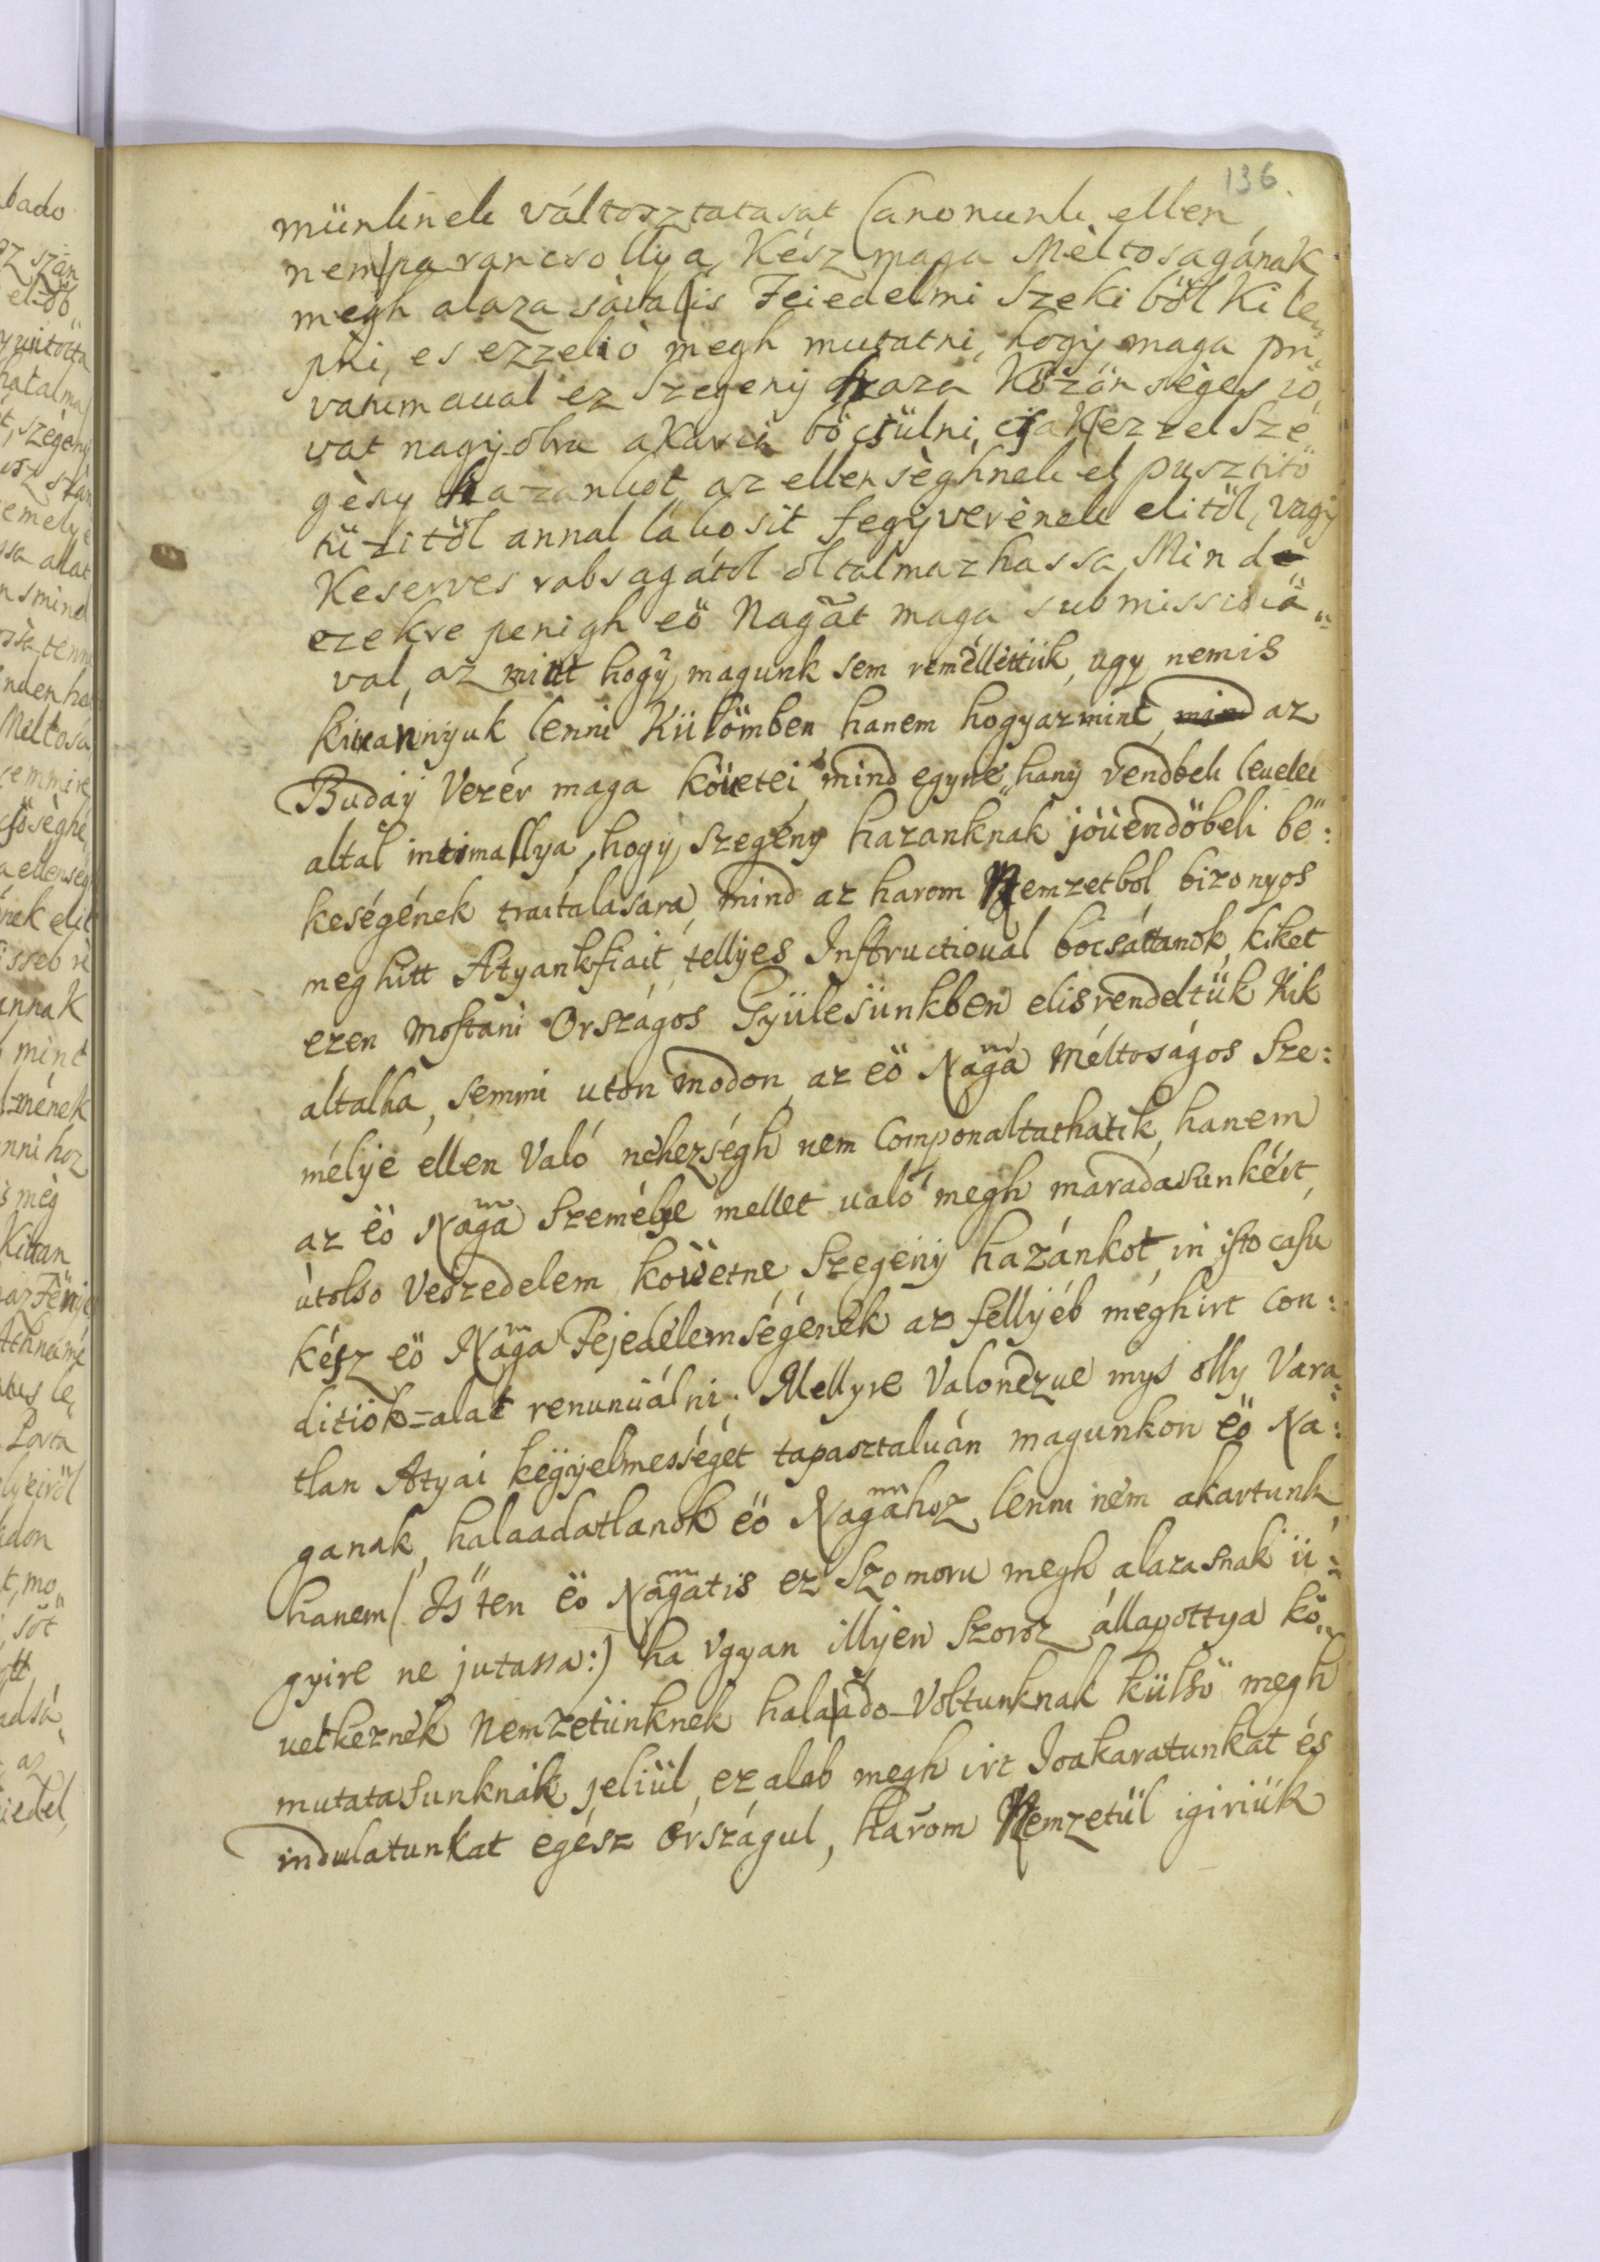 136.
münknek változtatasat Canonunk ellen
nem parancsollya, Kész maga Mèltosagának
megh alaza sàvalis Feiedelmi Szeki ből Ki le„
pni, es ezzelis megh mutatni, hogy maga pri„
vatumaual ez Szegeny haza Közönsèges iö„
vat nagyobra akaria böcsülni, csak ezzel Sze„
gèny hazankot az ellensèghnek el pusztitö
tüzitöl annal lákosit fegyverènek elitöl, vagy
Keserves rabsagátol oltalmazhassa, Mind
ezekre penigh eö Nagat maga submissioiä„
val, az mint hogy magunk sem reméllettük, ugy nemis
kiuánnyuk lenni Külömben hanem hogyazmint mind az
Buday Vezér maga követei mind egyne„hany rendbeli leuelei
altal intimallya, hogy szegeny hazanknak jöuendöbeli bé:
keségének tractalasara, mind az harom Nemzetböl bizonyos
meghitt Atyankfiait, tellyes Instructioual bocsáttanok, kiket
ezen mostani Országos Gyülesünkben elisrendeltük Kik
altalha, semmi uton modon az eö Naga Méltoságos Sze:
mélye ellen Való nehezségh nem Componaltathatik, hanem
az eö Naga Személye mellet ualo megh maradasunkért,
ùtolso Veszedelem köuetne Szegény hazánkot, in isto casu
kész eö Naga Fejedelemségének az fellyéb meghirt con:
ditiok=alat renunciálni. Mellyre Valonézue mys olly Vara:
tlan Atyai kegyelmességét tapasztaluán magunkon eö Na:
ganak, halaadatlanok eö Nagahoz lenni nem akartunk,
hanem (Isten eö Nagatis ez Szomoru megh alazasnak ü:
gyire ne jutassa:) ha vgyan illyen Szoros állapottya kö„
uetkeznek Nemzetünknek halaádo-Voltunknak külsö megh
mutatasunknak jeliül, ez alab megh irt Joakaratunkat és
indulatunkat egész Országul, Harom Nemzetül igiriük